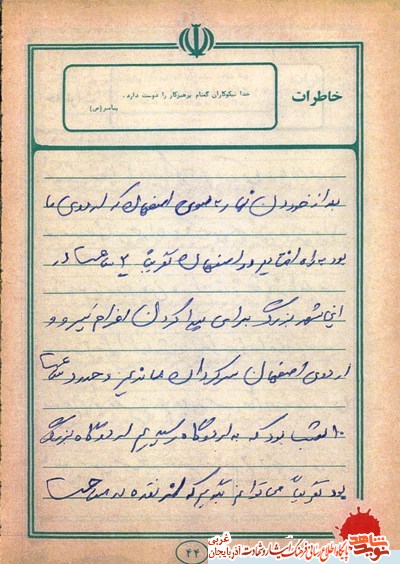 خاطرات
خدا نیکوکاران گمنام پرهیزکار را دوست دارد.
پیامبر (ص)
بعد از خوردن نهار به سوی اصفهان که اردوی ما
بود به راه افتادیم در اصفهان تقریباً ۲ ساعت در
این شهر بزرگ برای پیدا کردن اعزام نیرو و
اردوی اصفهان سرگردان ماندیم و حدود ساعت
۱۰ شب بود که به اردوگاه رسیدیم اردوگاه بزرگی
بود تقریباً می‌توانم بگویم که
۴۴
نوید شاهد
پایگاه اطلاع رسانی فرهنگ ایثار و شهادت آذربایجان غربی